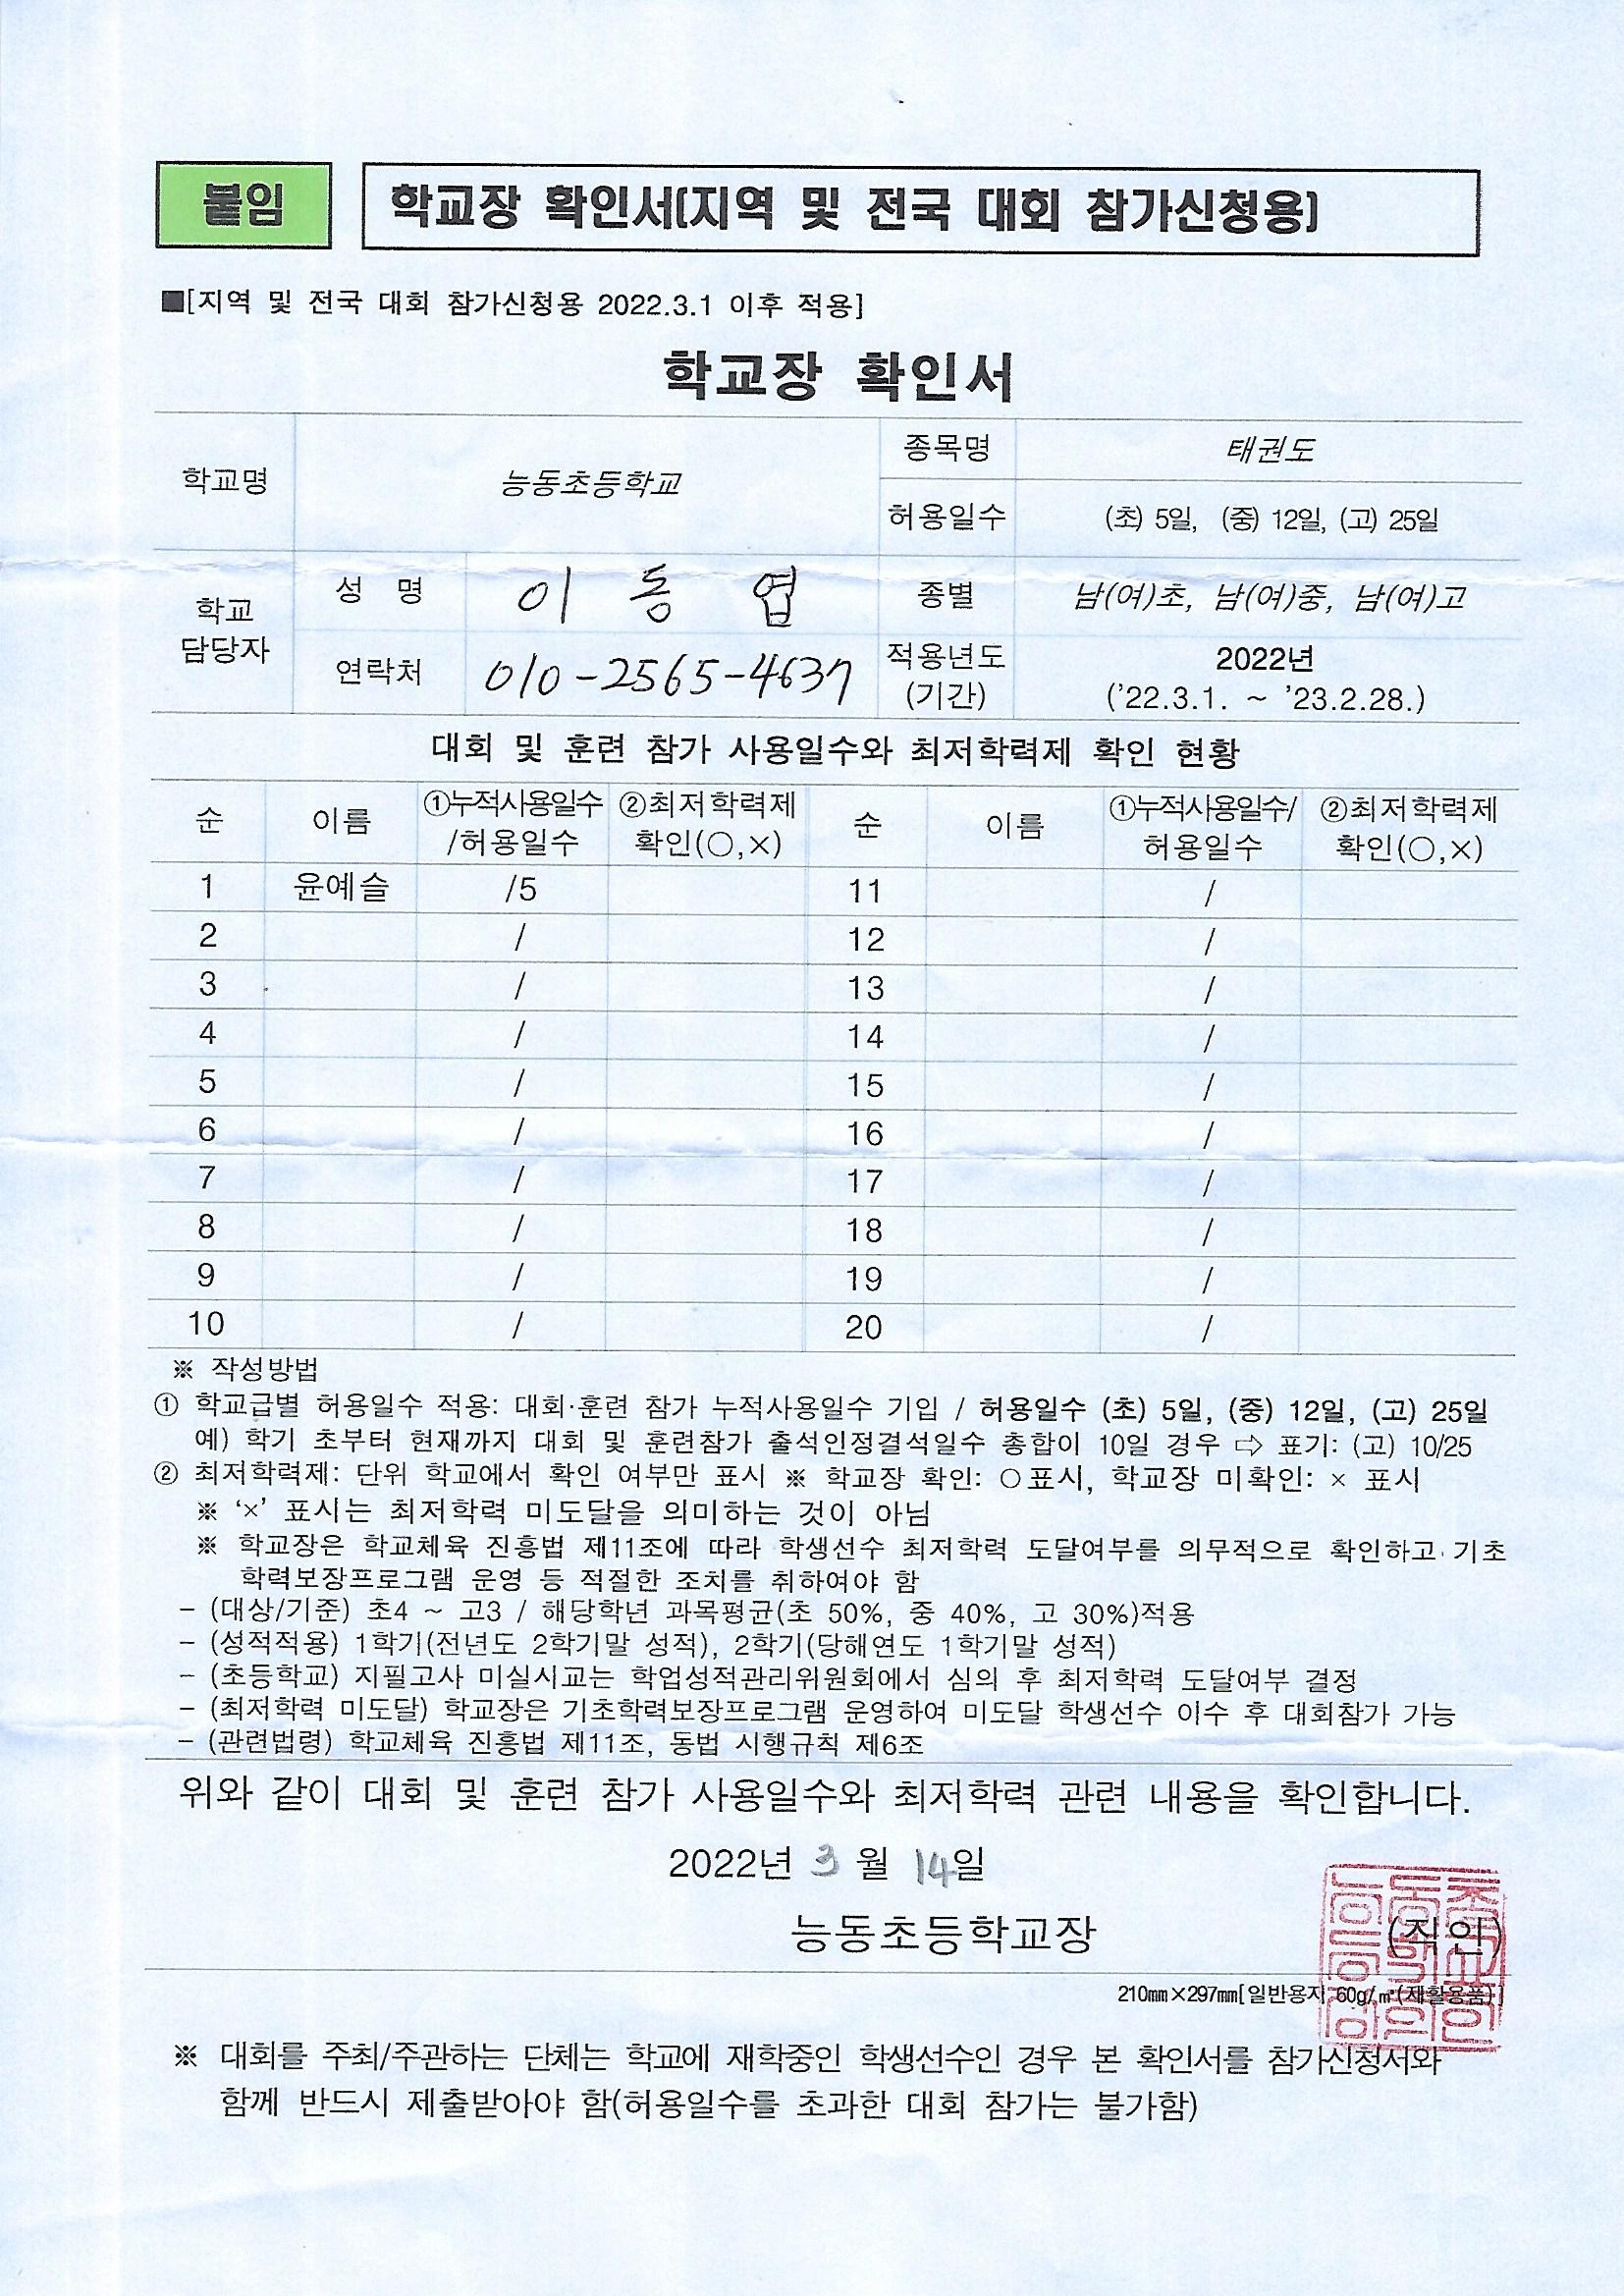 붙임
학교장 확인서(지역 및 전국 대회 참가신청용)
■[지역 및 전국 대회 참가신청용 2022.3.1 이후 적용]
학교장 확인서
학교명 능동초등학교 종목명 태권도
허용일수 (초) 5일, (중) 12일, (고) 25일
학교 담당자 성 명 이 동 엽 종별 남(여)초, 남(여)중, 남(여)고
연락처 010-2565-4637 적용년도 (기간) 2022년
('22.3.1. ~ '23.2.28.)
대회 및 훈련 참가 사용일수와 최저학력제 확인 현황
순 이름 ①누적사용일수/허용일수 ②최저학력제 확인(○,×) 순 이름 ①누적사용일수/허용일수 ②최저학력제 확인(○,×)
1 윤예슬 /5 11 /
2 / 12 /
3 / 13 /
4 / 14 /
5 / 15 /
6 / 16 /
7 / 17 /
8 / 18 /
9 / 19 /
10 / 20 /
※ 작성방법
① 학교급별 허용일수 적용: 대회·훈련 참가 누적사용일수 기입 / 허용일수 (초) 5일, (중) 12일, (고) 25일
예) 학기 초부터 현재까지 대회 및 훈련참가 출석인정결석일수 총합이 10일 경우 ⇨ 표기: (고) 10/25
② 최저학력제: 단위 학교에서 확인 여부만 표시 ※ 학교장 확인: ○표시, 학교장 미확인: × 표시
※ '×' 표시는 최저학력 미도달을 의미하는 것이 아님
※ 학교장은 학교체육 진흥법 제11조에 따라 학생선수 최저학력 도달여부를 의무적으로 확인하고, 기초
학력보장프로그램 운영 등 적절한 조치를 취하여야 함
- (대상/기준) 초4 ~ 고3 / 해당학년 과목평균(초 50%, 중 40%, 고 30%)적용
- (성적적용) 1학기(전년도 2학기말 성적), 2학기(당해연도 1학기말 성적)
- (초등학교) 지필고사 미실시교는 학업성적관리위원회에서 심의 후 최저학력 도달여부 결정
- (최저학력 미도달) 학교장은 기초학력보장프로그램 운영하여 미도달 학생선수 이수 후 대회참가 가능
- (관련법령) 학교체육 진흥법 제11조, 동법 시행규칙 제6조
위와 같이 대회 및 훈련 참가 사용일수와 최저학력 관련 내용을 확인합니다.
2022년 3 월 14일
능동초등학교장 (직인)
210㎜×297㎜[일반용지 60g/㎡(재활용품)]
※ 대회를 주최/주관하는 단체는 학교에 재학중인 학생선수인 경우 본 확인서를 참가신청서와
함께 반드시 제출받아야 함(허용일수를 초과한 대회 참가는 불가함)